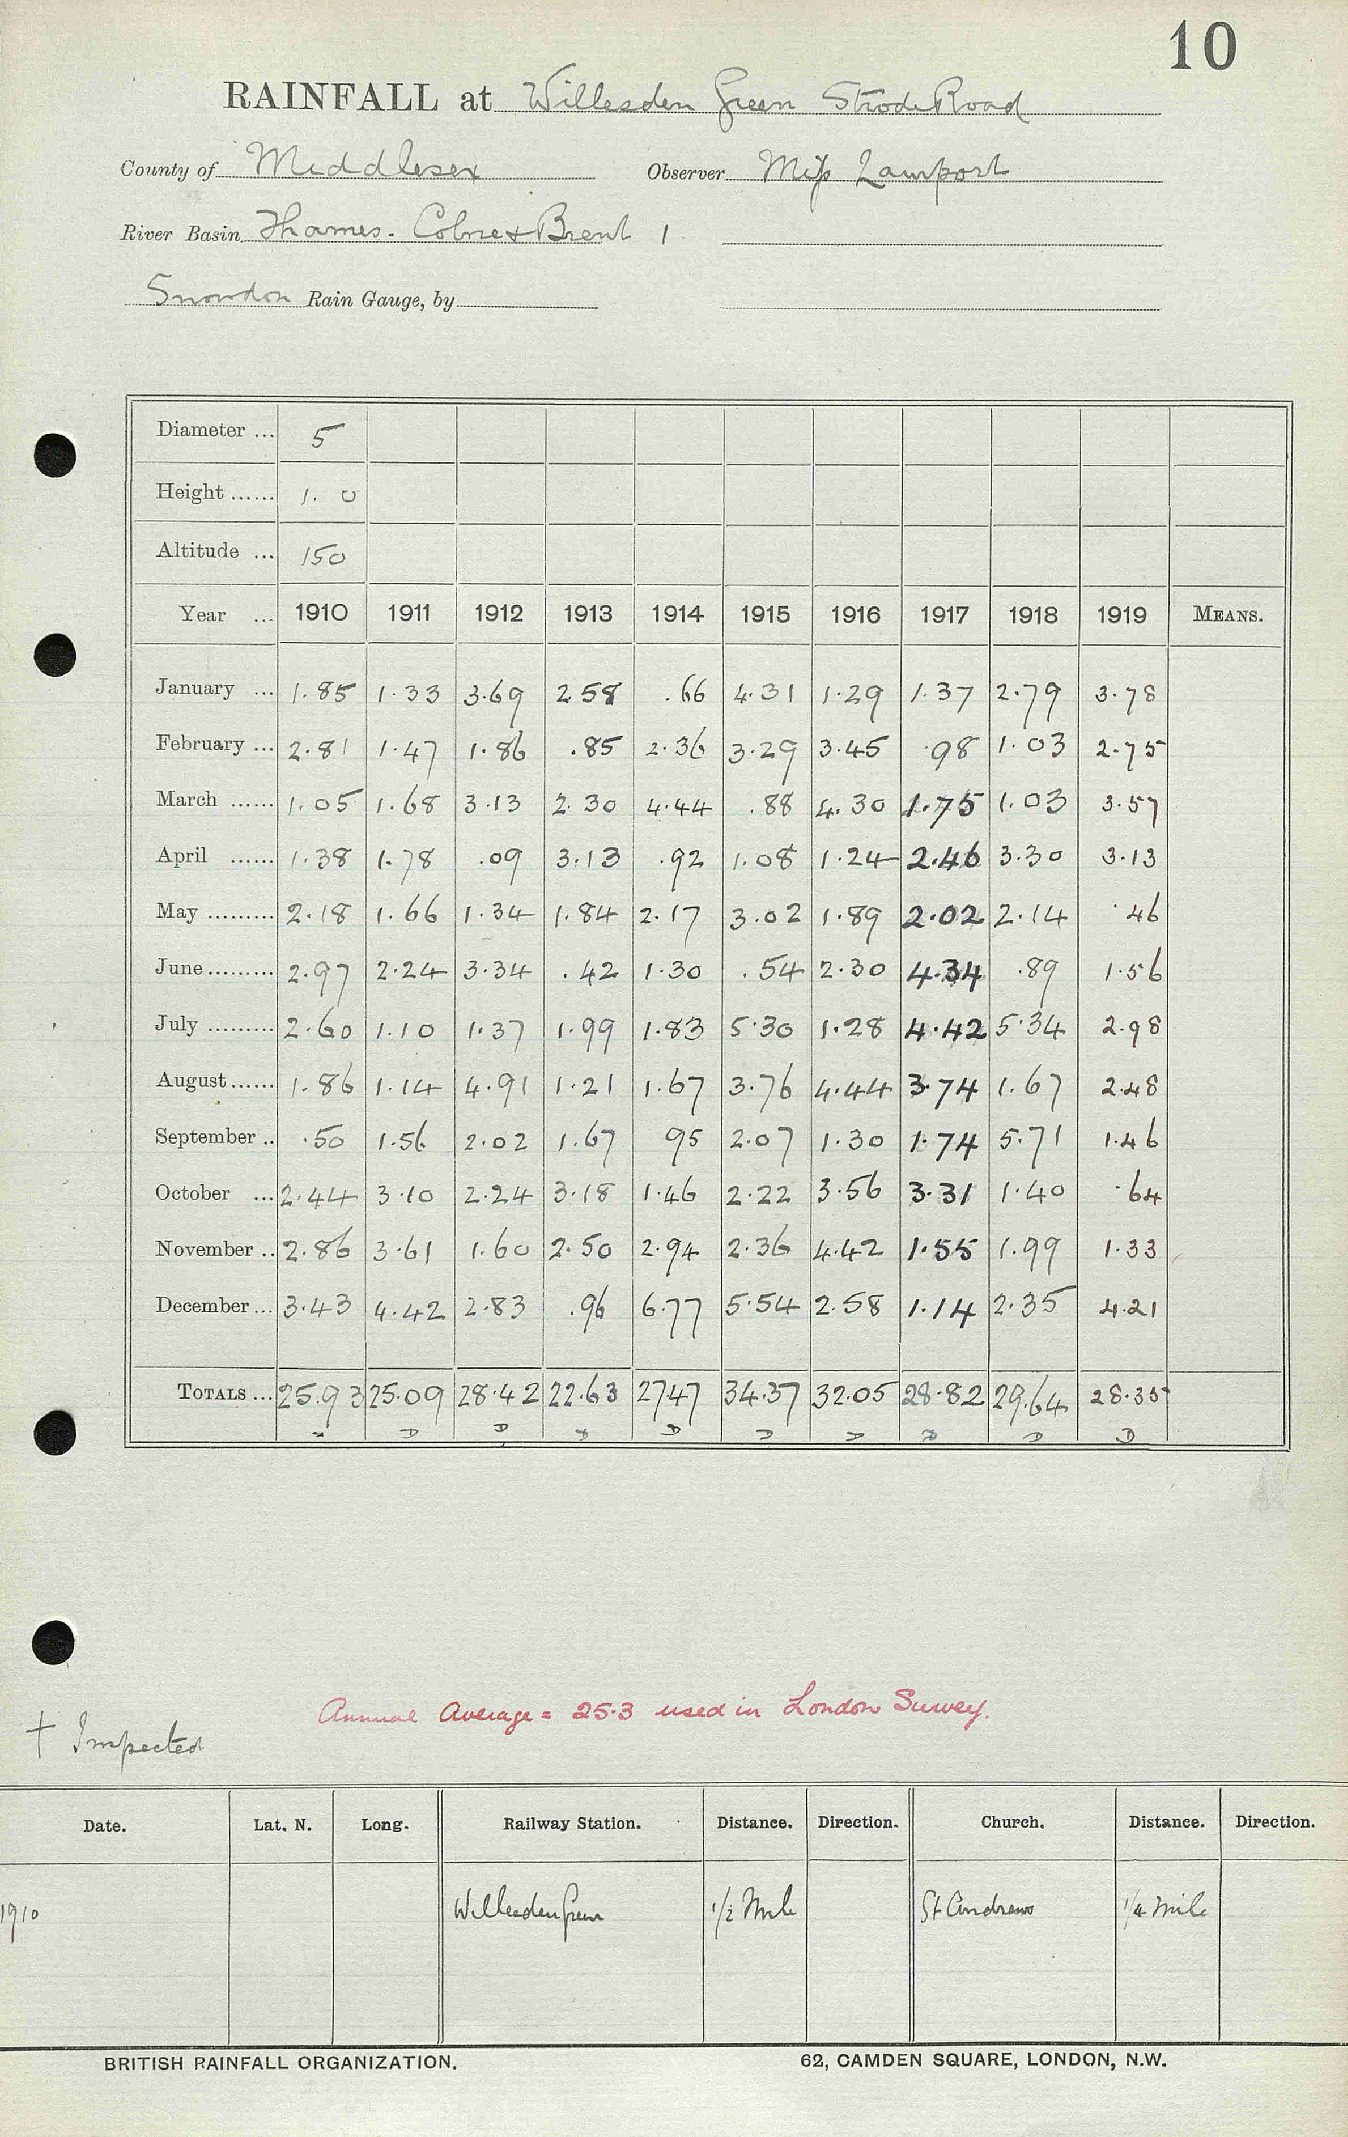 10
RAINFALL at Willesden Green Strode Road
County of Middlesex Observer Miss Lamport
River Basin Thames. Colne & Brent 1
Snowdon Rain Gauge, by
Diameter ... 5
Height ...... 1. 0
Altitude ... 150
Year ... 1910 1911 1912 1913 1914 1915 1916 1917 1918 1919 MEANS.
January ... 1.85 1.33 3.69 2.58 .66 4.31 1.29 1.37 2.79 3.78
February ... 2.81 1.47 1.86 .85 2.36 3.29 3.45 .98 1.03 2.75
March ...... 1.05 1.68 3.13 2.30 4.44 .88 4.30 1.75 1.03 3.57
April ...... 1.38 1.78 .09 3.13 .92 1.08 1.24 2.46 3.30 3.13
May ......... 2.18 1.66 1.34 1.84 2.17 3.02 1.89 2.02 2.14 .46
June ......... 2.97 2.24 3.34 .42 1.30 .54 2.30 4.34 .89 1.56
July ......... 2.60 1.10 1.37 1.99 1.83 5.30 1.28 4.42 5.34 2.98
August ...... 1.86 1.14 4.91 1.21 1.67 3.76 4.44 3.74 1.67 2.48
September .. .50 1.56 2.02 1.67 95 2.07 1.30 1.74 5.71 1.46
October ... 2.44 3.10 2.24 3.18 1.46 2.22 3.56 3.31 1.40 .64
November .. 2.86 3.61 1.60 2.50 2.94 2.36 4.42 1.55 1.99 1.33
December ... 3.43 4.42 2.83 .96 6.77 5.54 2.58 1.14 2.35 4.21
TOTALS ... 25.93 25.09 28.42 22.63 27.47 34.37 32.05 28.82 29.64 28.35
D D D D D D D D D
Annual Average = 25.3 used in London Survey.
† Inspected
Date. Lat. N. Long. Railway Station. Distance. Direction. Church. Distance. Direction.
1910 Willesden Green 1/2 Mile St Andrews 1/4 mile
BRITISH RAINFALL ORGANIZATION. 62, CAMDEN SQUARE, LONDON, N.W.